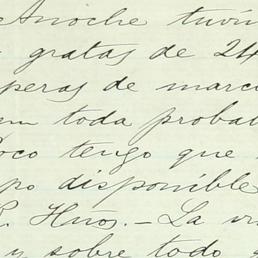 Anoche tuvi
gratas de 24
peras de marc
toda probab
oco tengo que
po disponible
R. Hnos.- La
y sobre todo